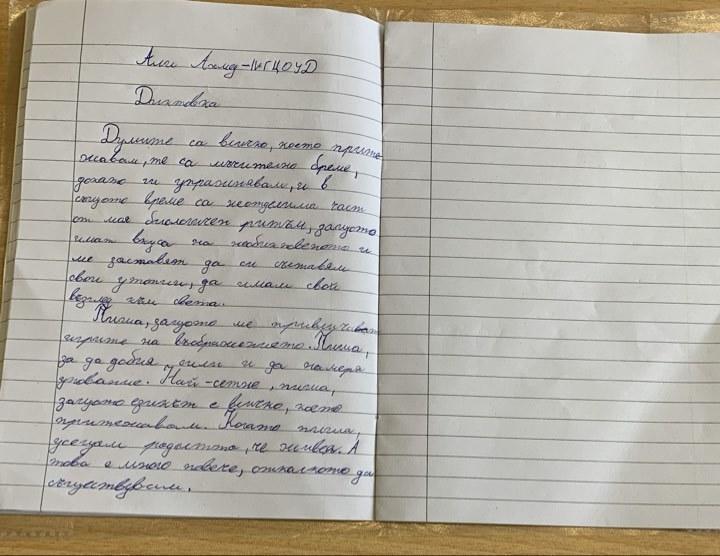 Али Ахмед - IV ГЦОУД
Диктовка
Думите са всичко, което прите-
жавам, те са мъчително бреме,
докато ги упражнявам, и в
същото време са неотменима част
от моя биологичен ритъм, защото
имат вкуса на необикновеното и
ме заставят да си съставям
свои утопии, да имам свой
възглед към света.
Пиша, защото ме привличват
игрите на въображението. Пиша,
за да добия сили и да намеря
упование. Най-сетне, пиша,
защото езикът е всичко, което
притежавам. Когато пиша,
усещам радостта, че живея. А
това е много повече, отколкото да
съществувам.